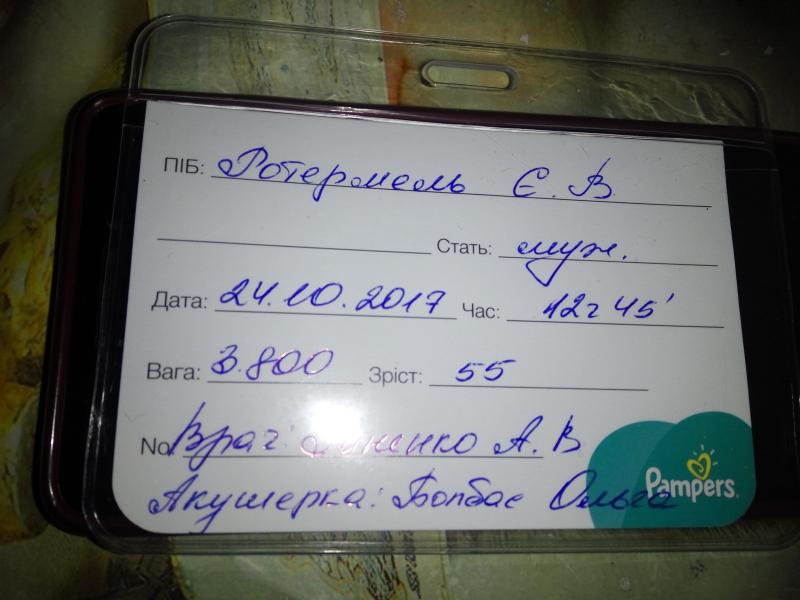 ПІБ: Ротермель Є. В.
Стать: муж.
Дата: 24.10.2017 Час: 12г 45'
Вага: 3.800 Зріст: 55
No Врач: А. В
Акушерка: Бопбас Ольга
Pampers